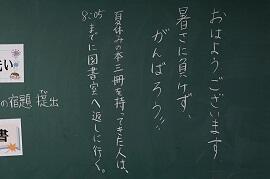 おはようございます
暑さに負けず、
がんばろう!!
夏休みの本三冊を持ってきた人は、
8:05までに図書室へ返しに行く。
の宿題 提出
洗い
書